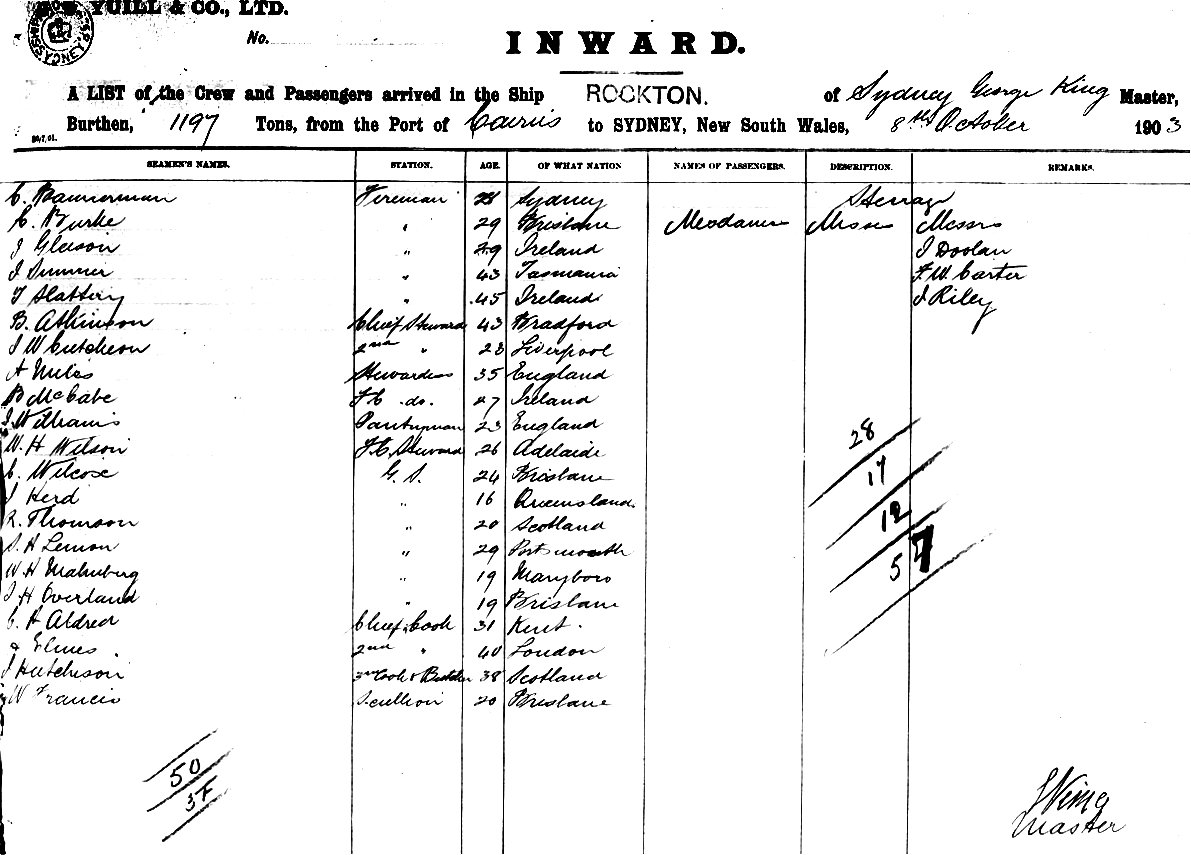 YUILL & CO., LTD.
No.
INWARD.
A LIST of the Crew and Passengers arrived in the Ship ROCKTON. of Sydney George King Master,
Burthen, 1197 Tons, from the Port of Cairns to SYDNEY, New South Wales, 8th October 1903
SEAMEN'S NAMES. STATION. AGE. OF WHAT NATION NAMES OF PASSENGERS. DESCRIPTION. REMARKS.
C. Bannerman Fireman 28 Sydney Steerage
C. Burke " 29 Brisbane Mesdames Misses Messrs
J Gleeson " 29 Ireland J Doolan
J Summer " 43 Tasmania F. W. Carter
T Slattery " 45 Ireland J Riley
B. Atkinson Chief Steward 43 Bradford
J W Cutcheon 2nd " 23 Liverpool
A Miles Stewardess 35 England
B McCabe F.C. do. 27 Ireland
J Williams Pantryman 23 England
W. H Wilson F.C. Steward 26 Adelaide 28
C. Wilcox G. S. 24 Brisbane 17
J Herd " 16 Queensland
R. Thomson " 20 Scotland 12
S. H Lemon " 29 Portsmouth
W H Malmberg " 19 Maryboro 57
J H Overland " 19 Brisbane
C. A Aldred Chief Cook 31 Kent
Elmes 2nd " 40 London
J Hutchison 3rd Cook & Butcher 38 Scotland
W Francis Scullion 20 Brisbane
50
37
King
Master